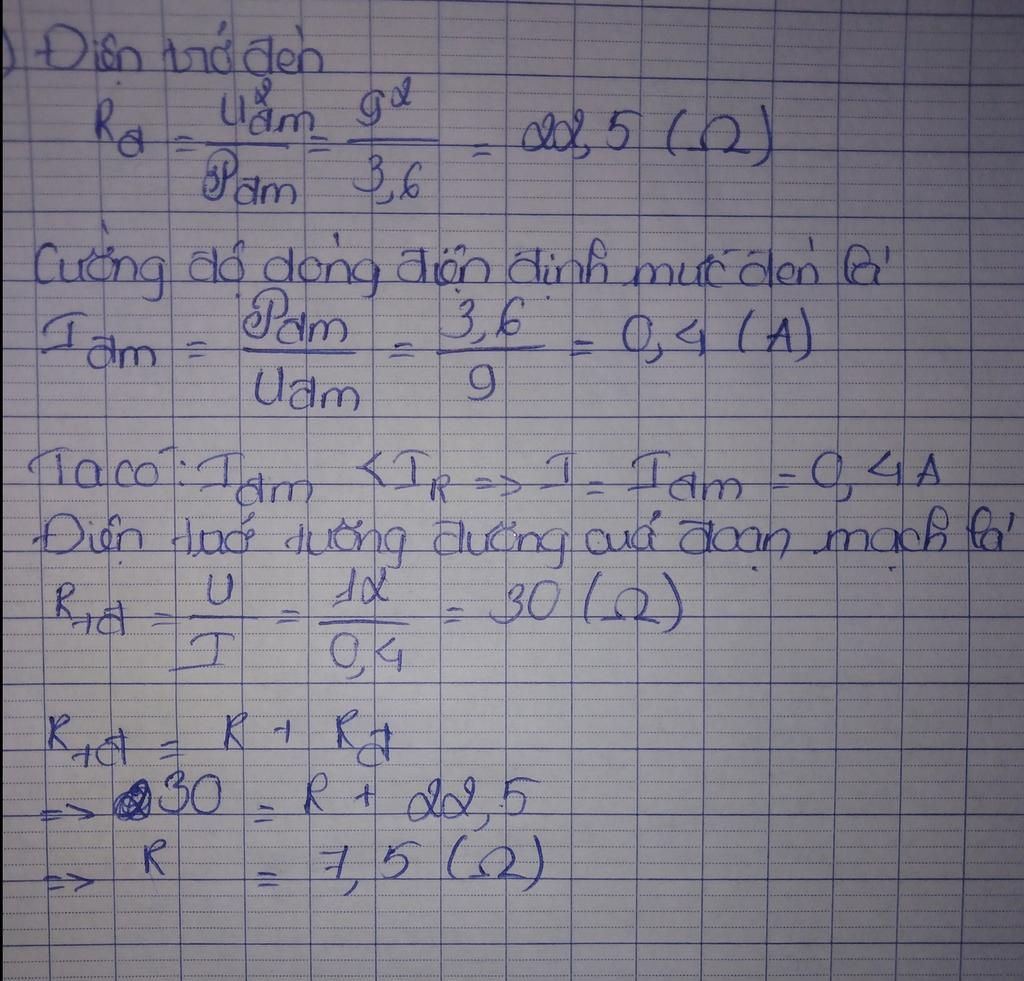 ) Điện trở đèn
Rđ = U²đm / Pđm = 9² / 3,6 = 22,5 (Ω)
Cường độ dòng điện định mức đèn là
Iđm = Pđm / Uđm = 3,6 / 9 = 0,4 (A)
Ta có: Iđm < IR => I = Iđm = 0,4A
Điện trở tương đương của đoạn mạch là
Rtđ = U / I = 12 / 0,4 = 30 (Ω)
Rtđ = R + Rđ
=> 30 = R + 22,5
=> R = 7,5 (Ω)